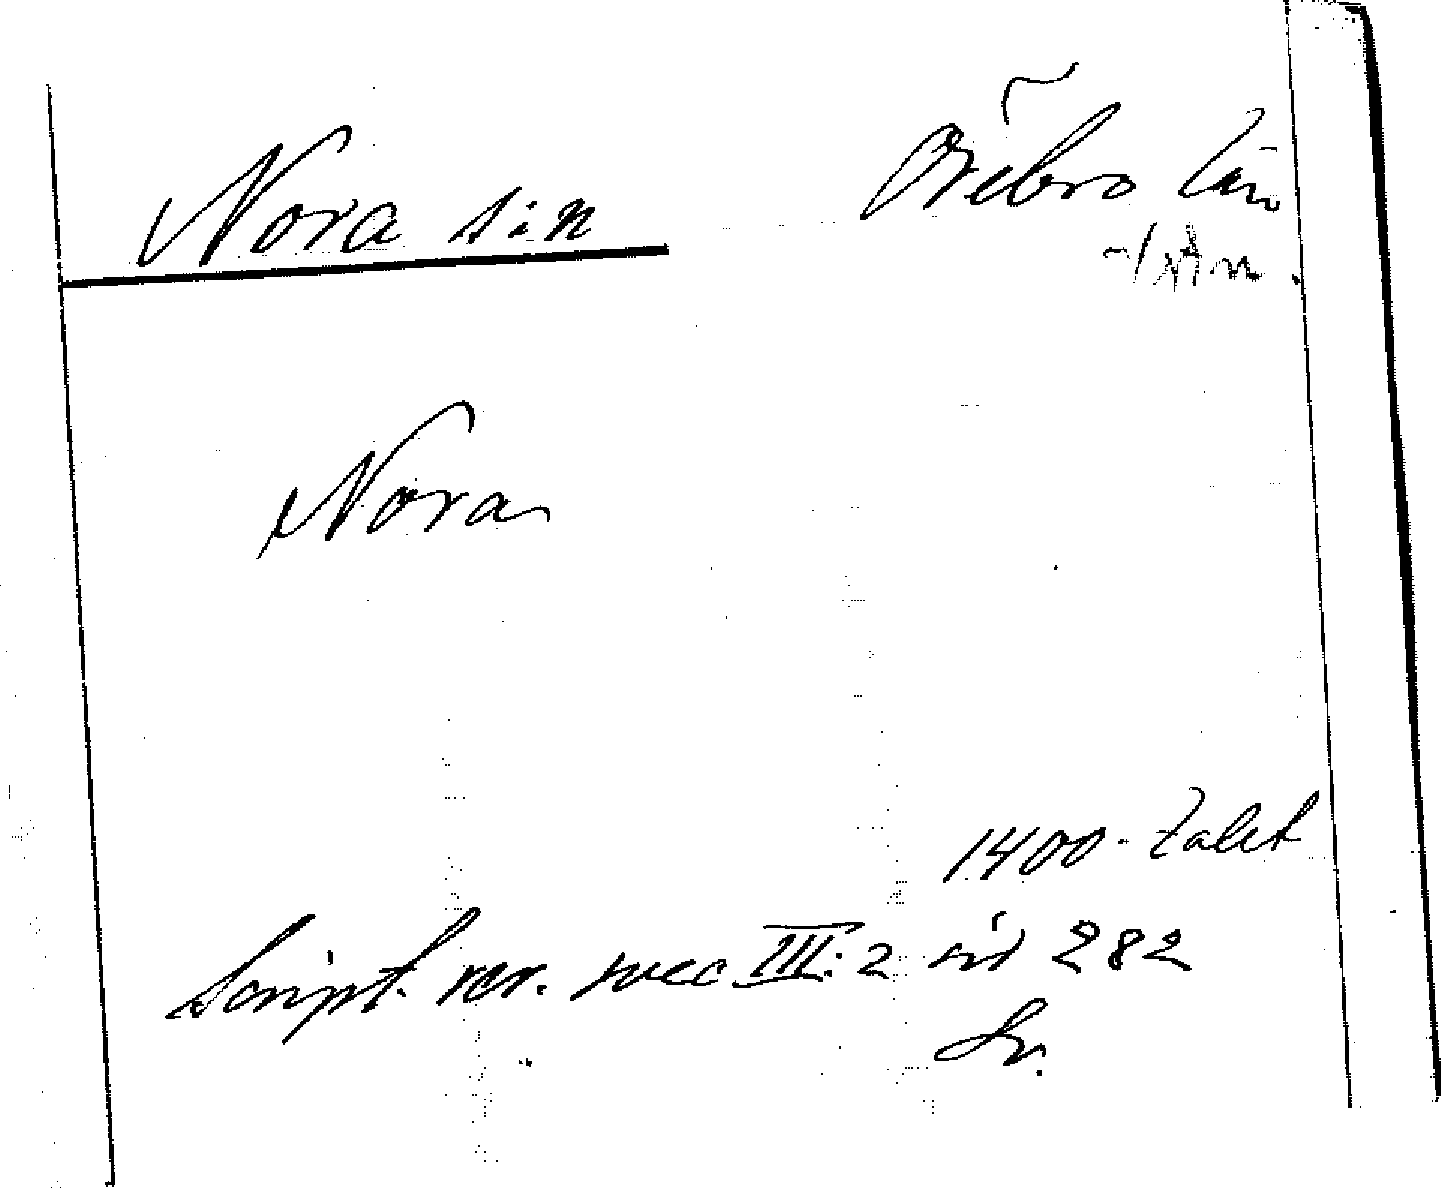 Nora sn
Örebro län
Vstm.
Nora
1400-talet
Script. rer. svec III:2 sid 282